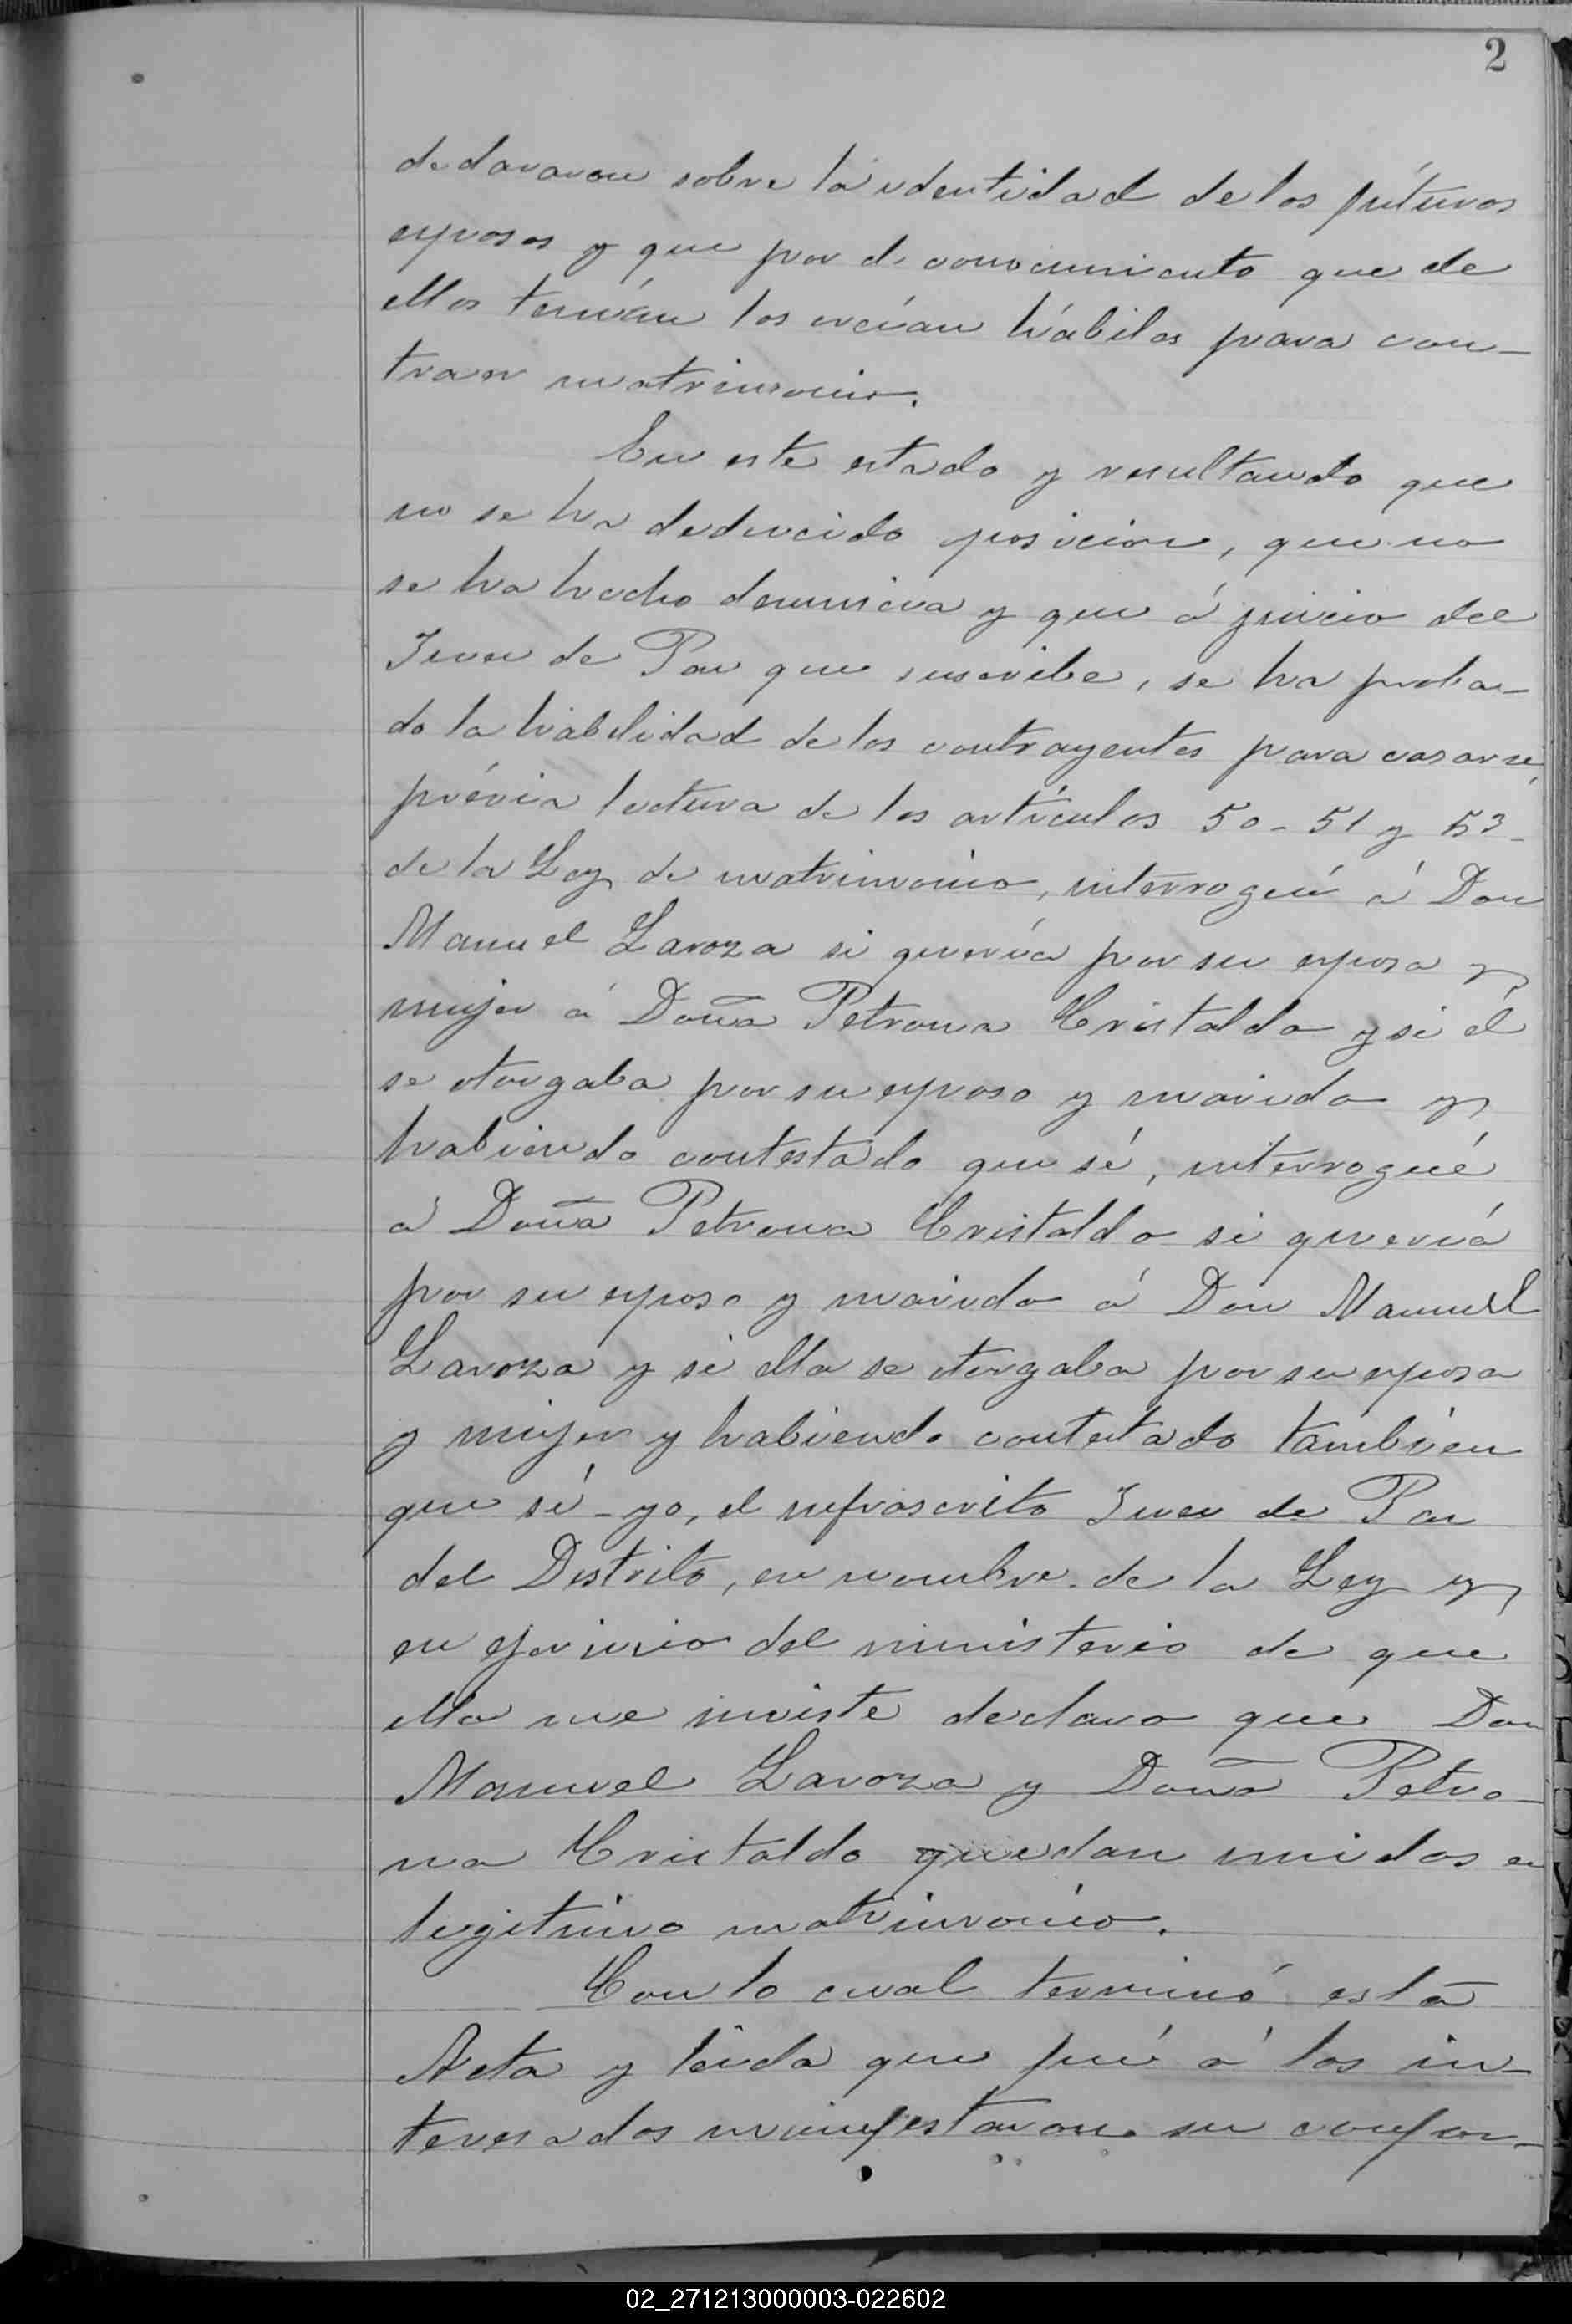 2
declararon sobre la identidad de los futuros
esposos y que por el conocimiento que de
ellos tenían los creían hábiles para con-
traer matrimonio.
En este estado y resultando que
no se ha deducido oposicion, que no
se ha hecho denuncia y que á juicio del
Juez de Paz que suscribe, se ha proba-
do la habilidad de los contrayentes para casarse,
prévia lectura de los artículos 50-51 y 53-
de la Ley de matrimonio, interrogué á Don
Manuel Laroza si quería por su esposa y
mujer á Doña Petrona Cristaldo y si él
se otorgaba por su esposo y marido y
habiendo contestado que sí, interrogué
á Doña Petrona Cristaldo si quería
por su esposo y marido á Don Manuel
Laroza y si ella se otorgaba por su esposa
y mujer y habiendo contestado tambien
que sí - yo, el infrascrito Juez de Paz
del Distrito, en nombre de la Ley y
en ejercicio del ministerio de que
ella me inviste declaro que Don
Manuel Laroza y Doña Petro-
na Cristaldo quedan unidos en
legitimo matrimonio.
Con lo cual terminó esta
Acta y leida que fué á los in-
teresados manifestaron su confor-
02_271213000003-022602